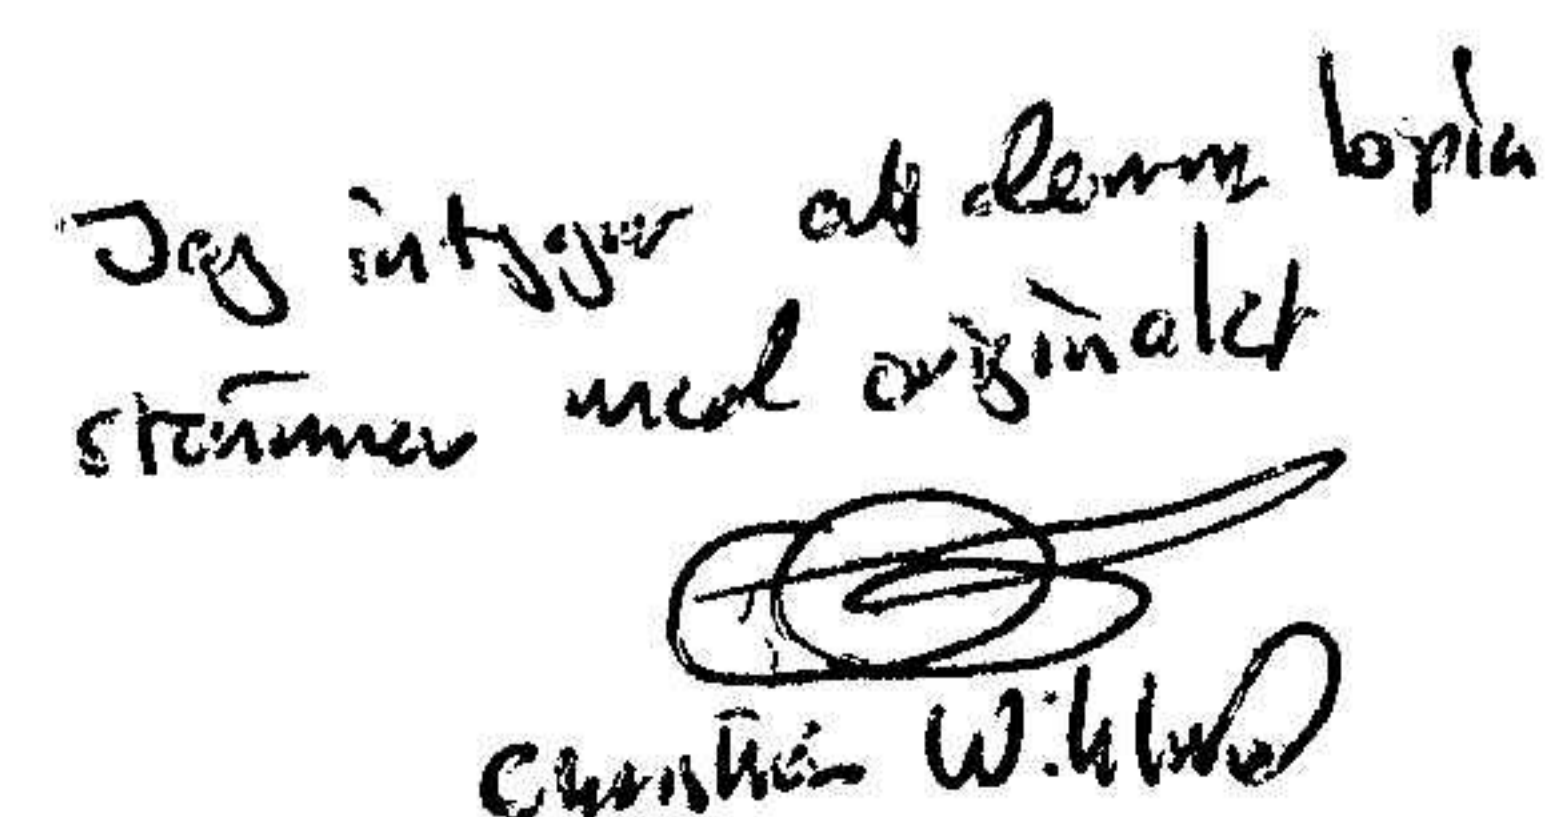 Jag intygar att denna kopia
stämmer med originalet
Christian